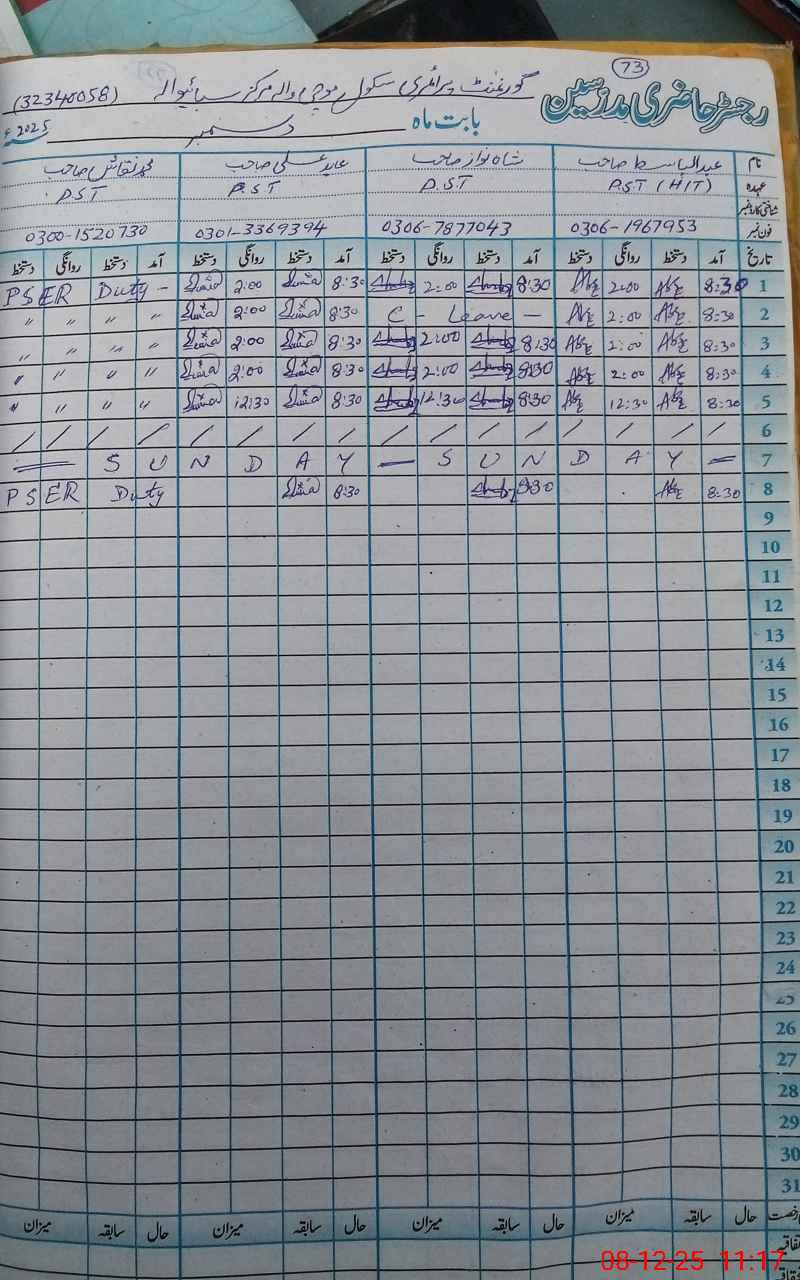 73
رجسٹر حاضری مدرسین
گورنمنٹ پرائمری سکول موچی والہ مرکز سبائیوالہ (32340058)
بابت ماہ دسمبر 2025ء
نام عبدالباسط صاحب شاہ نواز صاحب عابد علی صاحب محمد نقاش صاحب
عہدہ PST (H/T) P.ST P.ST P.ST
شناختی کارڈ نمبر
فون نمبر 0306-1967953 0306-7877043 0301-3369394 0300-1520730
تاریخ آمد دستخط روانگی دستخط آمد دستخط روانگی دستخط آمد دستخط روانگی دستخط آمد دستخط روانگی دستخط
1 8:30 2:00 8:30 2:00 8:30 2:00 PSER Duty -
2 8:30 2:00 C - Leave - 8:30 2:00 " " " "
3 8:30 2:00 8:30 2:00 8:30 2:00 " " " "
4 8:30 2:00 8:30 2:00 8:30 2:00 " " " "
5 8:30 12:30 8:30 12:30 8:30 12:30 " " " "
6 / / / / / / / / / / / / / / / /
7 — S U N D A Y — S U N D A Y —
8 8:30 8:30 8:30 PSER Duty
9
10
11
12
13
14
15
16
17
18
19
20
21
22
23
24
25
26
27
28
29
30
31
رخصت حال سابقہ میزان حال سابقہ میزان حال سابقہ میزان حال سابقہ میزان
08-12-25 11:17